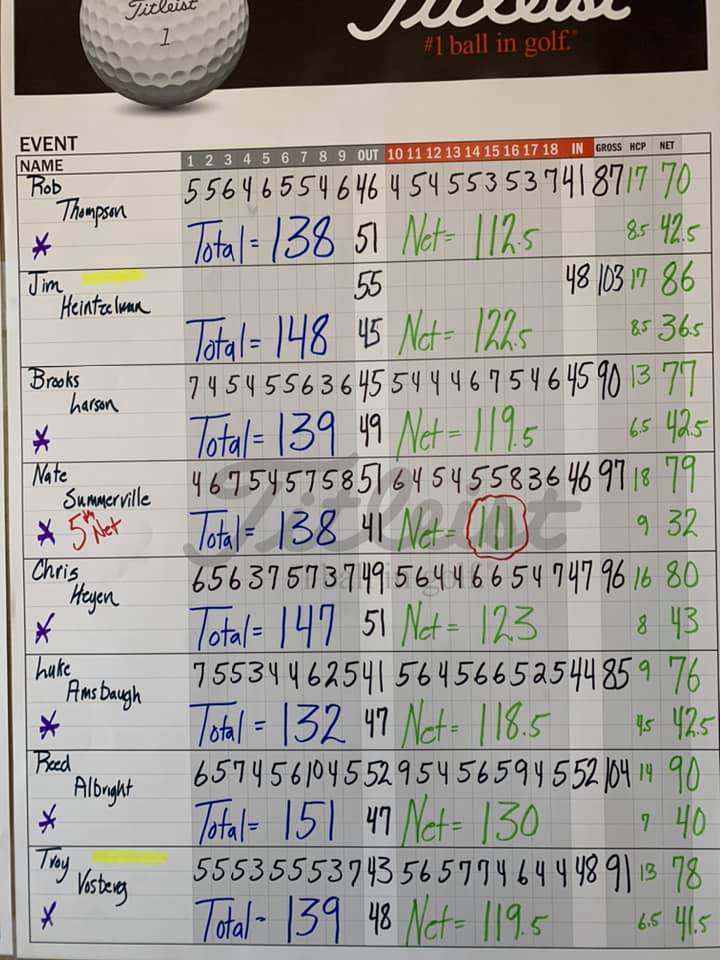 Titleist
1
Titleist
#1 ball in golf.®
EVENT
NAME 1 2 3 4 5 6 7 8 9 OUT 10 11 12 13 14 15 16 17 18 IN GROSS HCP NET
Rob Thompson 5 5 6 4 6 5 5 4 6 46 4 5 4 5 5 3 5 3 7 41 87 17 70
* Total = 138 51 Net = 112.5 8.5 42.5
Jim Heintzelman 55 48 103 17 86
Total = 148 45 Net = 122.5 8.5 36.5
Brooks Larson 7 4 5 4 5 5 6 3 6 45 5 4 4 4 6 7 5 4 6 45 90 13 77
* Total = 139 49 Net = 119.5 6.5 42.5
Nate Summerville 4 6 7 5 4 5 7 5 8 51 6 4 5 4 5 5 8 3 6 46 97 18 79
* 5th Net Total = 138 41 Net = 111 9 32
Titleist
Chris Heyen 6 5 6 3 7 5 7 3 7 49 5 6 4 4 6 6 5 4 7 47 96 16 80
* Total = 147 51 Net = 123 8 43
Luke Amsbaugh 7 5 5 3 4 4 6 2 5 41 5 6 4 5 6 6 5 2 5 44 85 9 76
* Total = 132 47 Net = 118.5 4.5 42.5
Reed Albright 6 5 7 4 5 6 10 4 5 52 9 5 4 5 6 5 9 4 5 52 104 14 90
* Total = 151 47 Net = 130 7 40
Troy Vosberg 5 5 5 3 5 5 5 3 7 43 5 6 5 7 7 4 6 4 4 48 91 13 78
* Total - 139 48 Net = 119.5 6.5 41.5